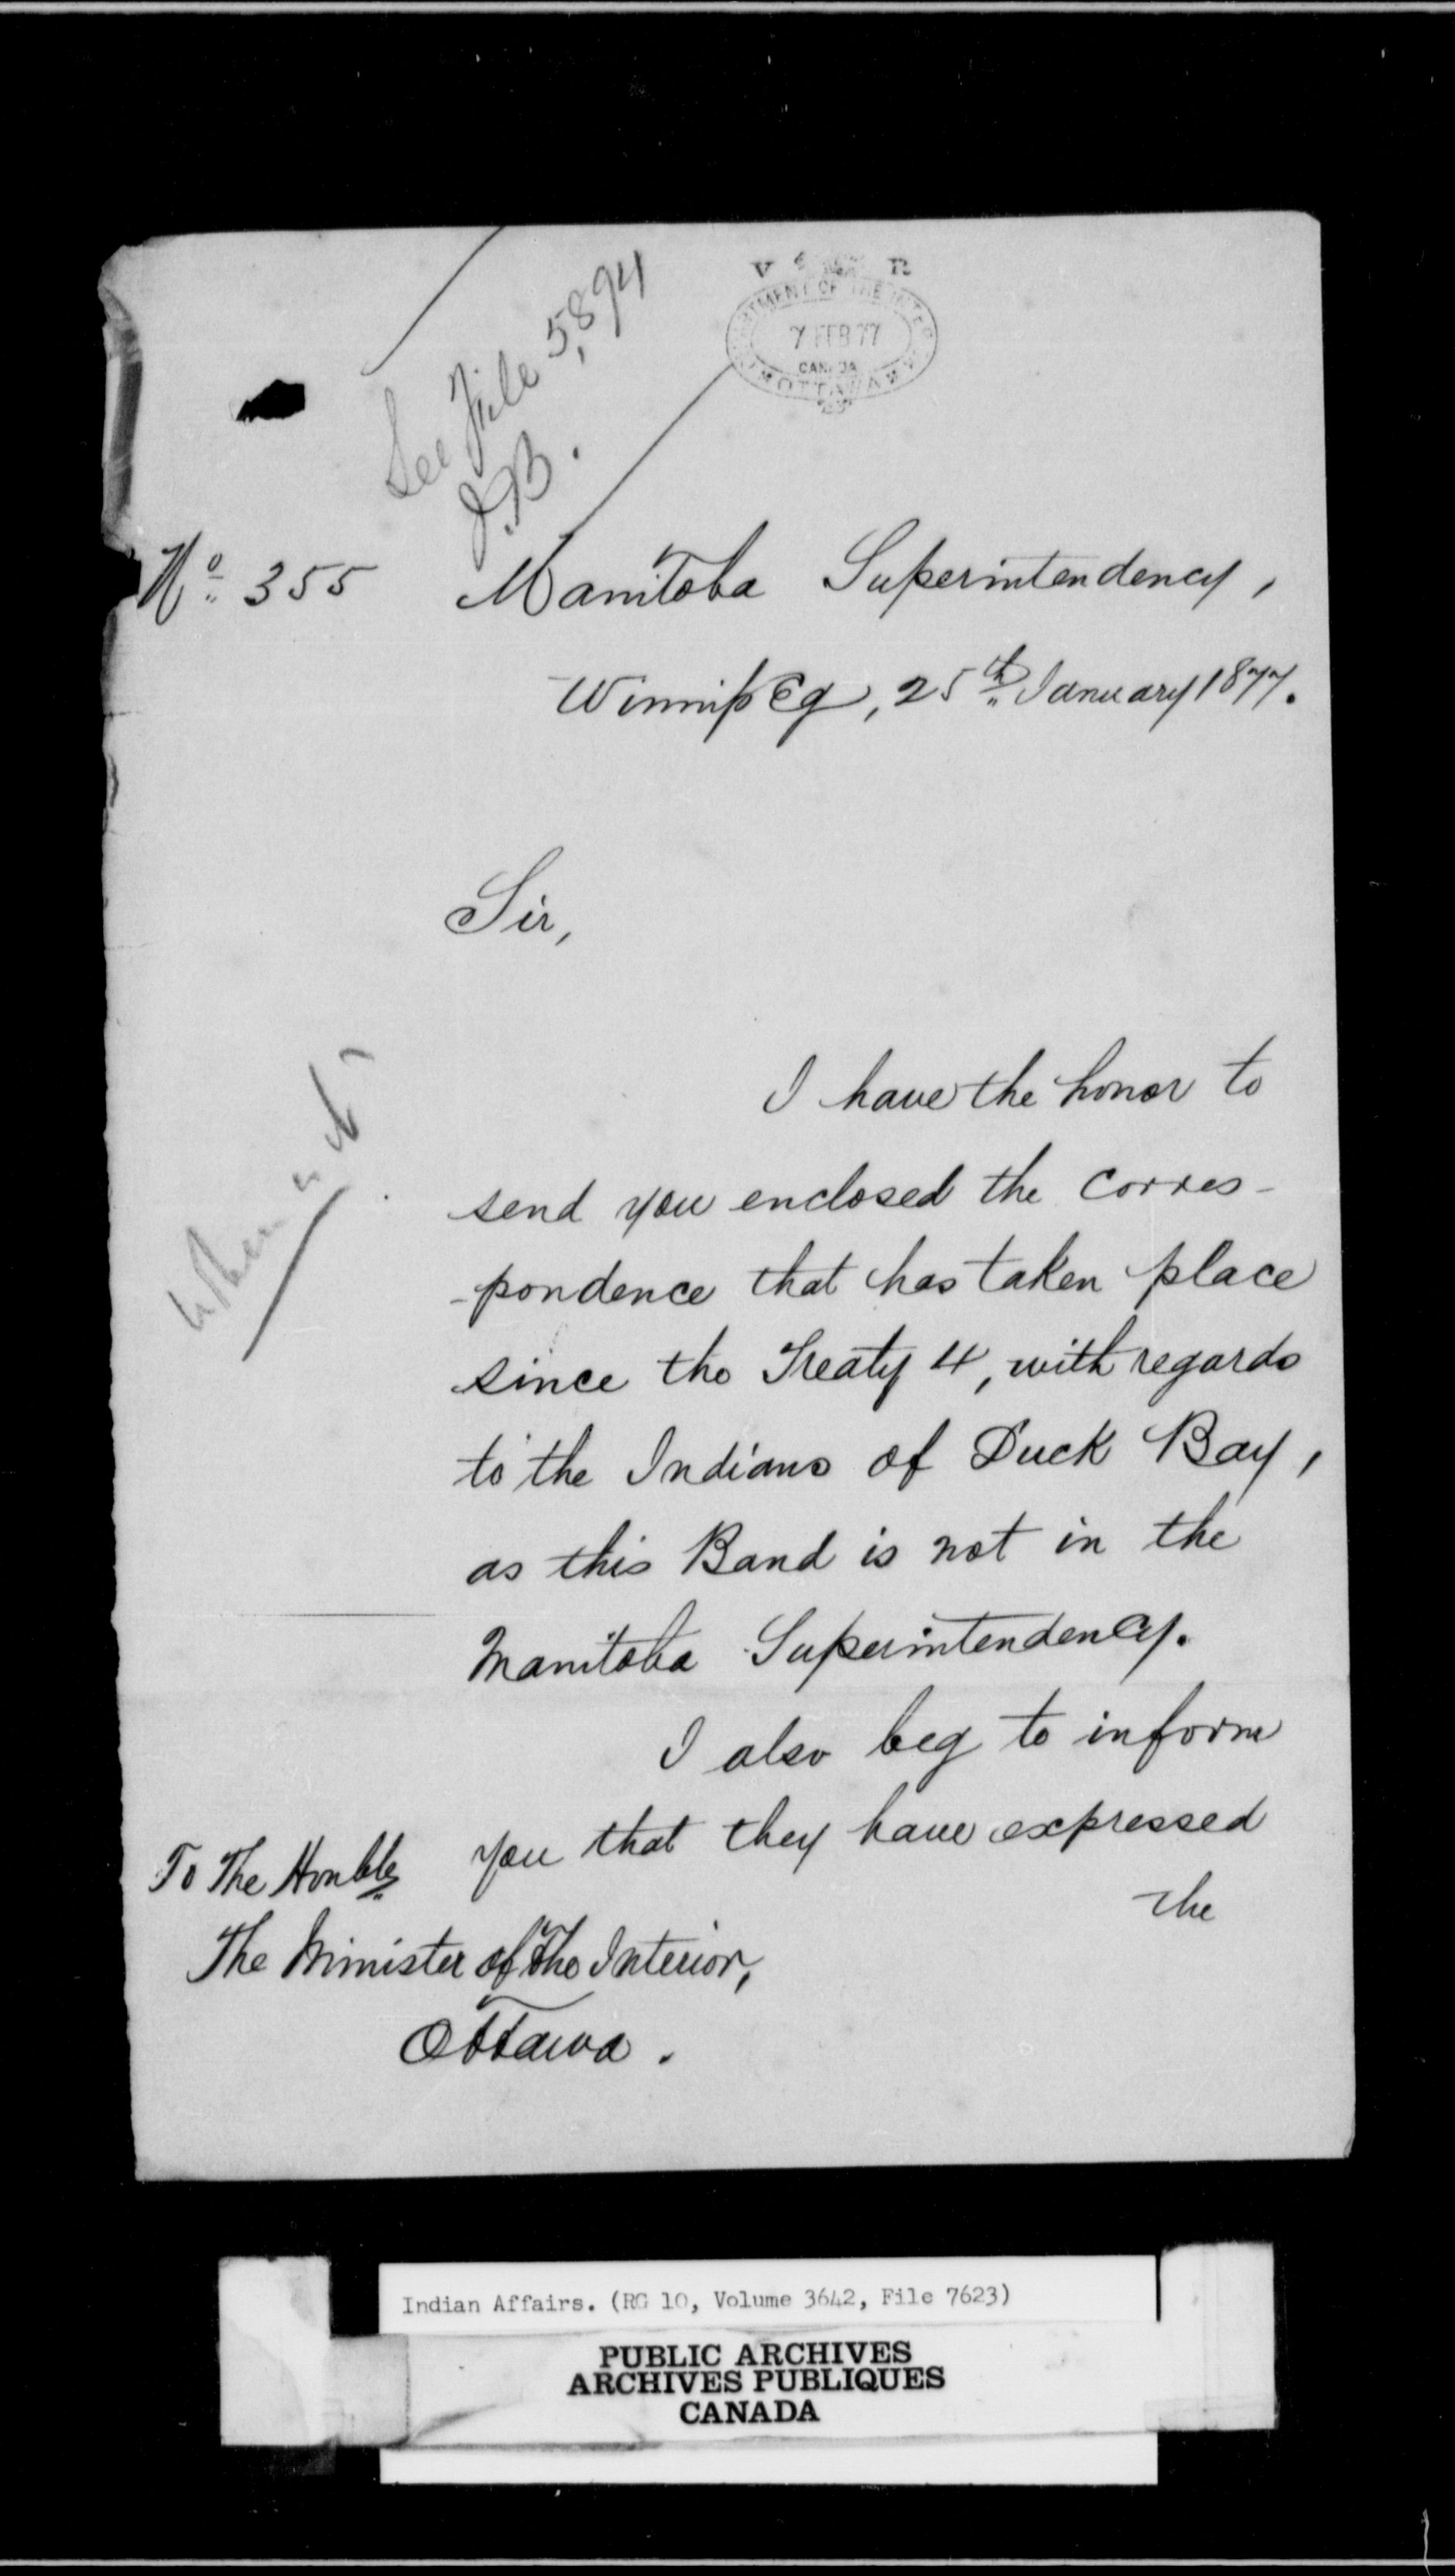 See File 5,894
J.B.
V R
DEPARTMENT OF THE INTERIOR
7 FEB 77
CANADA
OTTAWA
No. 355 Manitoba Superintendency,
Winnipeg, 25th January 1877.
Sir,
I have the honor to
send you enclosed the corres-
-pondence that has taken place
since the Treaty 4, with regards
to the Indians of Duck Bay,
as this Band is not in the
Manitoba Superintendency.
I also beg to inform
you that they have expressed
the
To The Honble
The Minister of the Interior,
Ottawa.
Indian Affairs. (RG 10, Volume 3642, File 7623)
PUBLIC ARCHIVES
ARCHIVES PUBLIQUES
CANADA